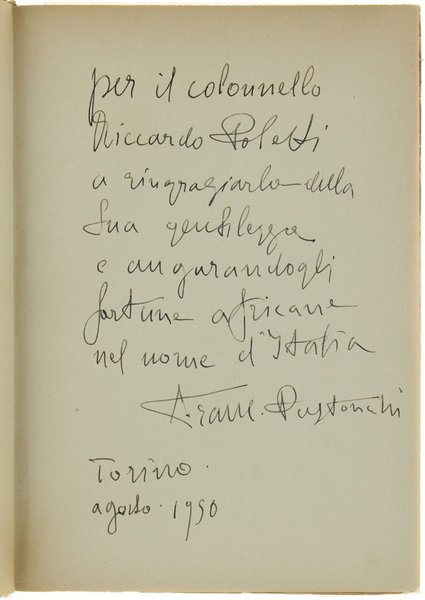 per il colonnello
Riccardo Poletti
a ringraziarlo della
Sua gentilezza
e augurandogli
fortune africane
nel nome d'Italia
Franc. Pastonchi
Torino.
agosto. 1950